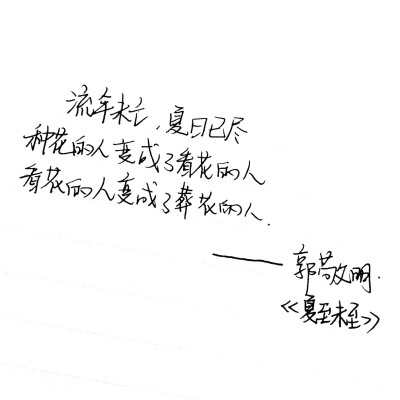 流年未亡，夏日已尽
种花的人变成了看花的人
看花的人变成了葬花的人.
——郭敬明.
《夏至未至》